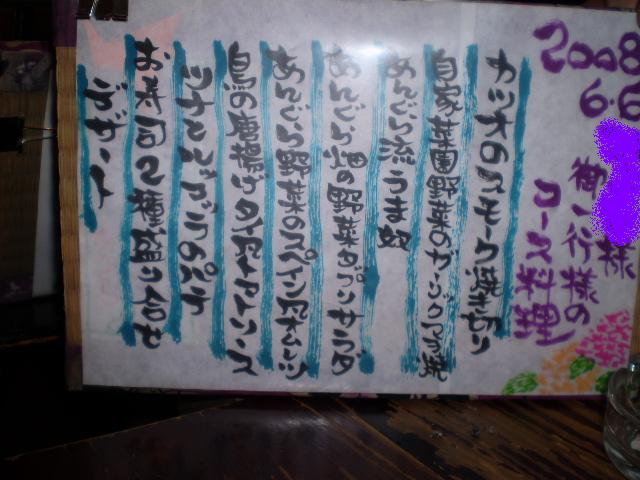 2008
6.6
様
御一行様の
コース料理
カツオのスモーク焼き切り
自家菜園野菜のガーリックマヨ焼
あんぐら流うま奴
あんぐら畑の野菜タップリサラダ
あんぐら野菜のスペイン風オムレツ
鳥の唐揚げタイアトマトソース
ツナとルッコラのパテ
お寿司2種盛り合せ
デザート